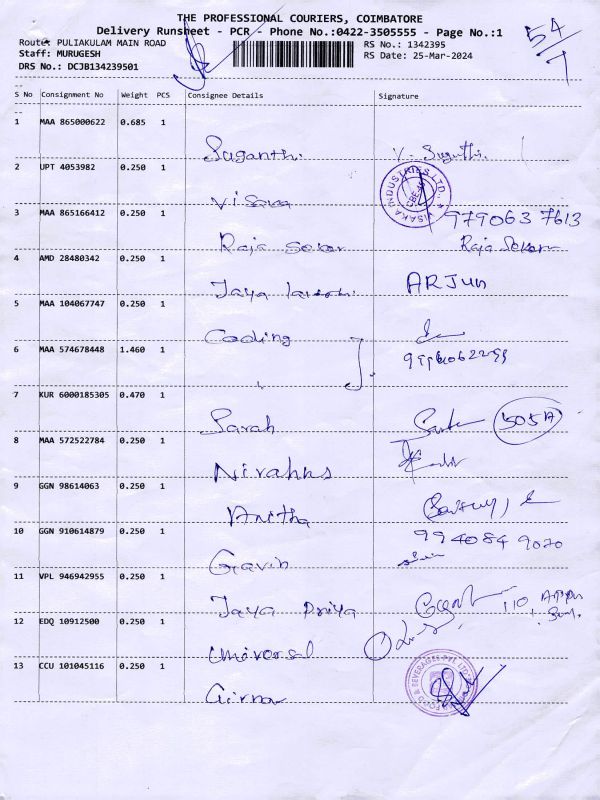 THE PROFESSIONAL COURIERS, COIMBATORE
Delivery Runsheet - PCR - Phone No.:0422-3505555 - Page No.:1
54/7
Route: PULIAKULAM MAIN ROAD
RS No.: 1342395
Staff: MURUGESH
RS Date: 25-Mar-2024
DRS No.: DCJB134239501
S No Consignment No Weight PCS Consignee Details Signature
1 MAA 865000622 0.685 1
Suganthi
2 UPT 4053982 0.250 1
Visaka
VISAKA INDUSTRIES LTD.
3 MAA 865166412 0.250 1
979063 7613
Raja Sekar Raja Sekar
4 AMD 28480342 0.250 1
Jaya ARJUN
5 MAA 104067747 0.250 1
Coding
6 MAA 574678448 1.460 1
7 KUR 6000185305 0.470 1
Sarah 505A
8 MAA 572522784 0.250 1
9 GGN 98614063 0.250 1
Anitha
10 GGN 910614879 0.250 1
994084 9020
Gavin
11 VPL 946942955 0.250 1
Jaya Priya 110
12 EDQ 10912500 0.250 1
Universal
13 CCU 101045116 0.250 1
FOOD & BEVERAGES PVT. LTD.